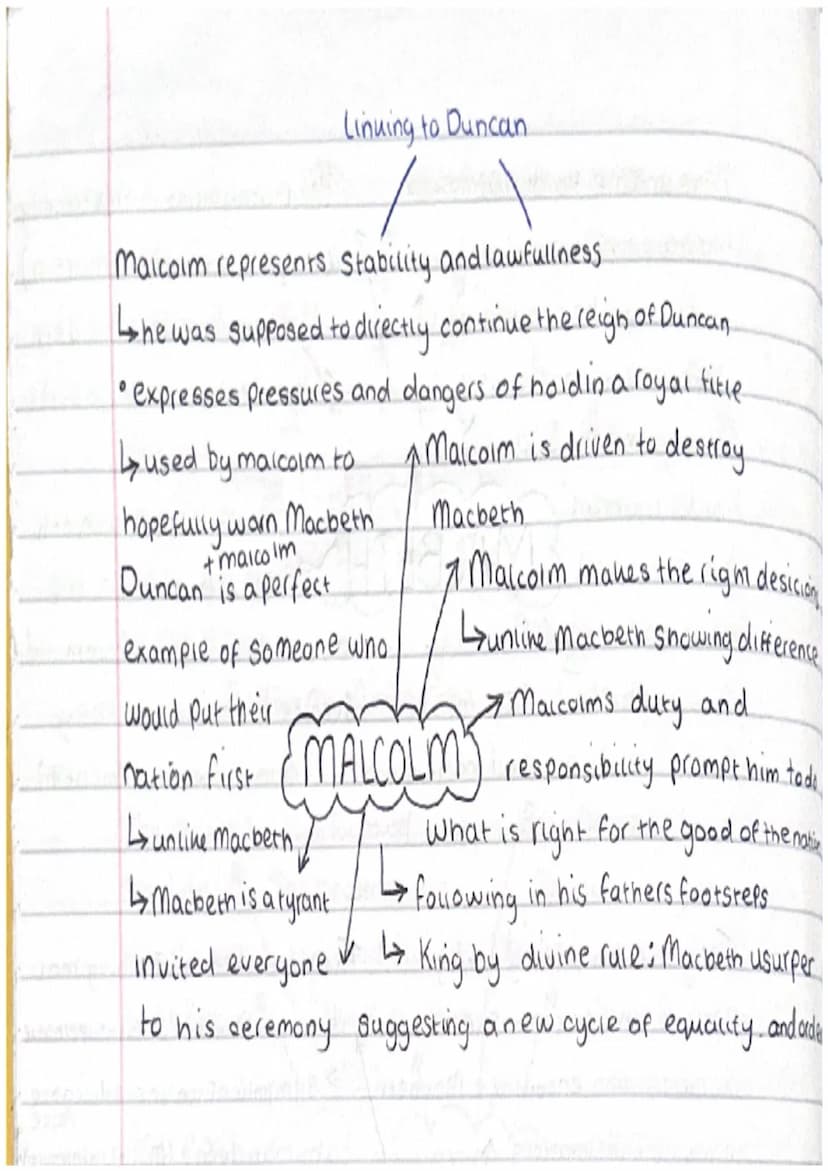 Linking to Duncan
Malcolm represents Stability and lawfullness
↳he was supposed to directly continue the reign of Duncan
•expresses pressures and dangers of holdin a royal title
↳used by malcolm to
hopefully warn Macbeth
+ malcolm
Duncan is a perfect
example of someone who
would put their
nation first
↳unlike Macbeth
↳Macbeth is a tyrant
Malcolm is driven to destroy
Macbeth
Malcolm makes the right desicions
↳unlike Macbeth showing difference
Malcolms duty and
responsibility prompt him to do
what is right for the good of the nation
↳ following in his fathers footsteps
↳ King by divine rule; Macbeth usurper
MALCOLM
invited everyone
to his ceremony suggesting a new cycle of equality and order